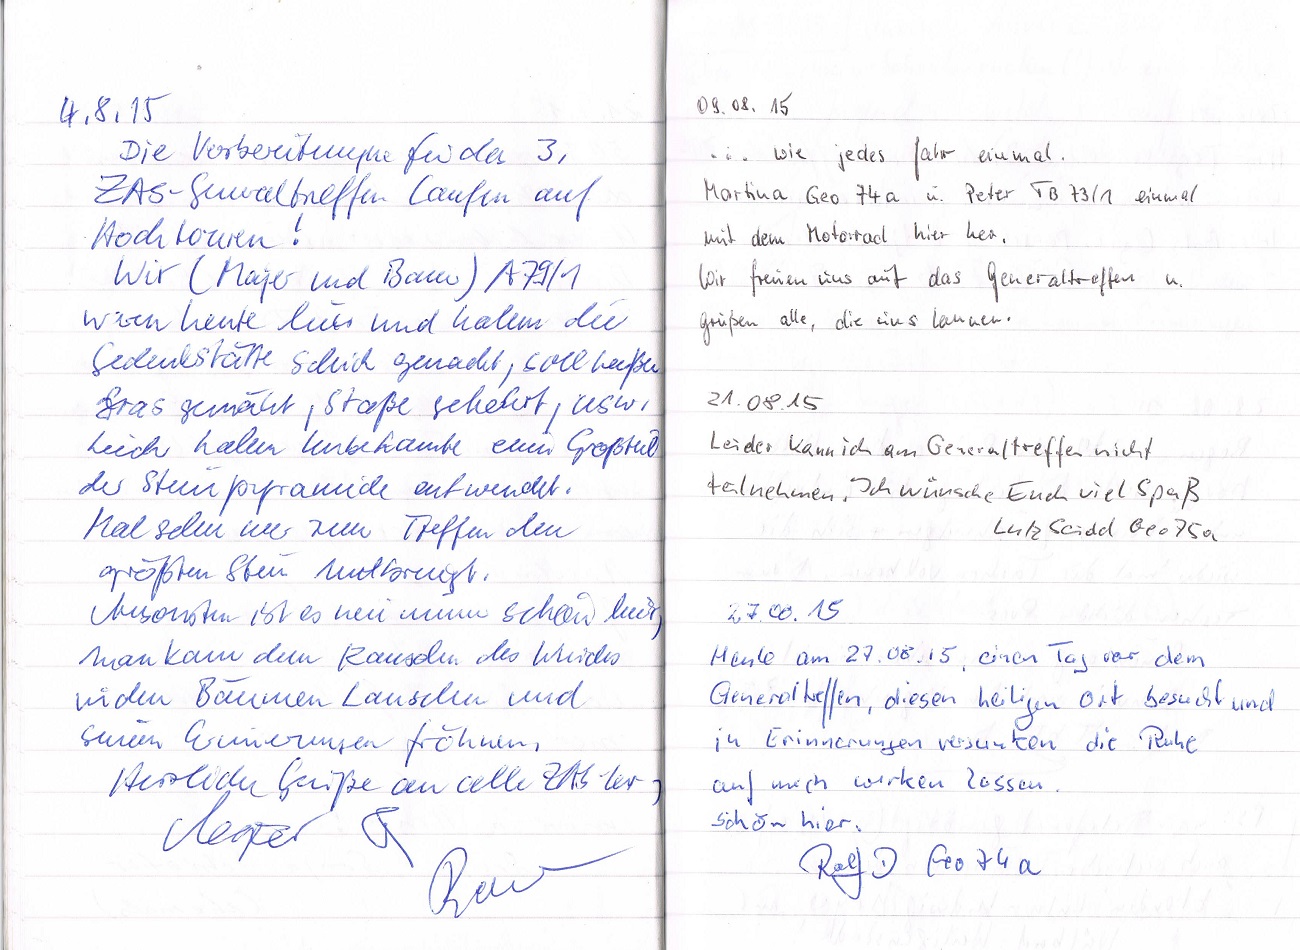 4.8.15
Die Vorbereitungen für das 3.
ZAS-Generaltreffen laufen auf
Hochtouren!
Wir (Majer und Bauer) A79/1
waren heute hier und haben die
Gedenkstätte schick gemacht, soll heißen
Gras gemäht, Staße gekehrt, usw.
Leider haben Unbekannte einen Großteil
der Steinpyramide entwendet.
Mal sehen wer zum Treffen den
größten Stein mitbringt.
Ansonsten ist es wie immer schön hier,
man kann dem Rauschen des Windes
in den Bäumen Lauschen und
seinen Erinnerungen fröhnen.
Herzliche Grüße an alle ZAS-ler,
09.08.15
... wie jedes Jahr einmal.
Martina Geo 74a u. Peter TB 73/1 einmal
mit dem Motorrad hier her.
Wir freuen uns auf das Generaltreffen u.
grüßen alle, die uns kennen.
21.08.15
Leider kann ich am Generaltreffen nicht
teilnehmen. Ich wünsche Euch viel Spaß
Lutz Geo 75a
27.08.15
Heute am 27.08.15, einen Tag vor dem
Generaltreffen, diesen heiligen Ort besucht und
in Erinnerungen versunken die Ruhe
auf mich wirken lassen.
schön hier.
Ralf D Geo 74a